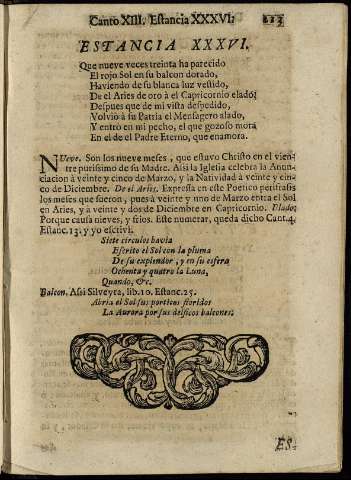 Canto XIII. Estancia XXXVI.
ESTANCIA XXXVI.
Que nueve veces treinta ha parecido
El rojo Sol en su balcon dorado,
Haviendo de su blanca luz vestido,
De el Aries de oro à el Capricornio elado;
Despues que de mi vista despedido,
Volviò à su Patria el Mensagero alado,
Y entrò en mi pecho, el que gozoso mora
En el de el Padre Eterno, que enamora.
NUeve. Son los nueve meses, que estuvo Christo en el vien-
tre purissimo de su Madre. Assi la Iglesia celebra la Anun-
ciacion à veinte y cinco de Marzo, y la Natividad à veinte y cin-
co de Diciembre. De el Aries. Expressa en este Poetico perifrasis
los meses que fueron, pues à veinte y uno de Marzo entra el Sol
en Aries, y à veinte y dos de Diciembre en Capricornio. Elado;
Porque causa nieves, y frios. Este numerar, queda dicho Cant.4.
Estanc.13. y yo escrivi.
Siete circulos havia
Escrito el Sol con la pluma
De su explendor, y en su esfera
Ochenta y quatro la Luna,
Quando, &c.
Balcon. Assi Silveyra, lib.10. Estanc.25.
Abria el Sol sus porticos floridos
La Aurora por sus delficos balcones.
ES-